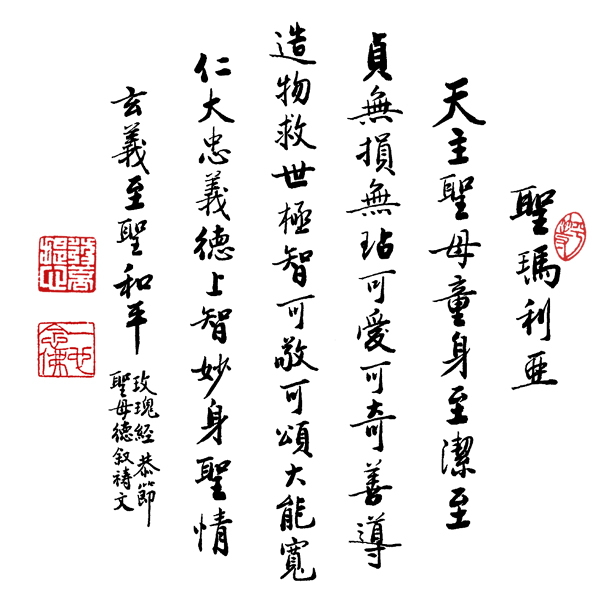 聖瑪利亜
天主聖母童身至潔至
貞無損無玷可愛可奇善導
造物救世極智可敬可頌大能寬
仁大忠義德上智妙身聖情
玄義至聖和平
玫瑰經恭節
聖母德叙祷文